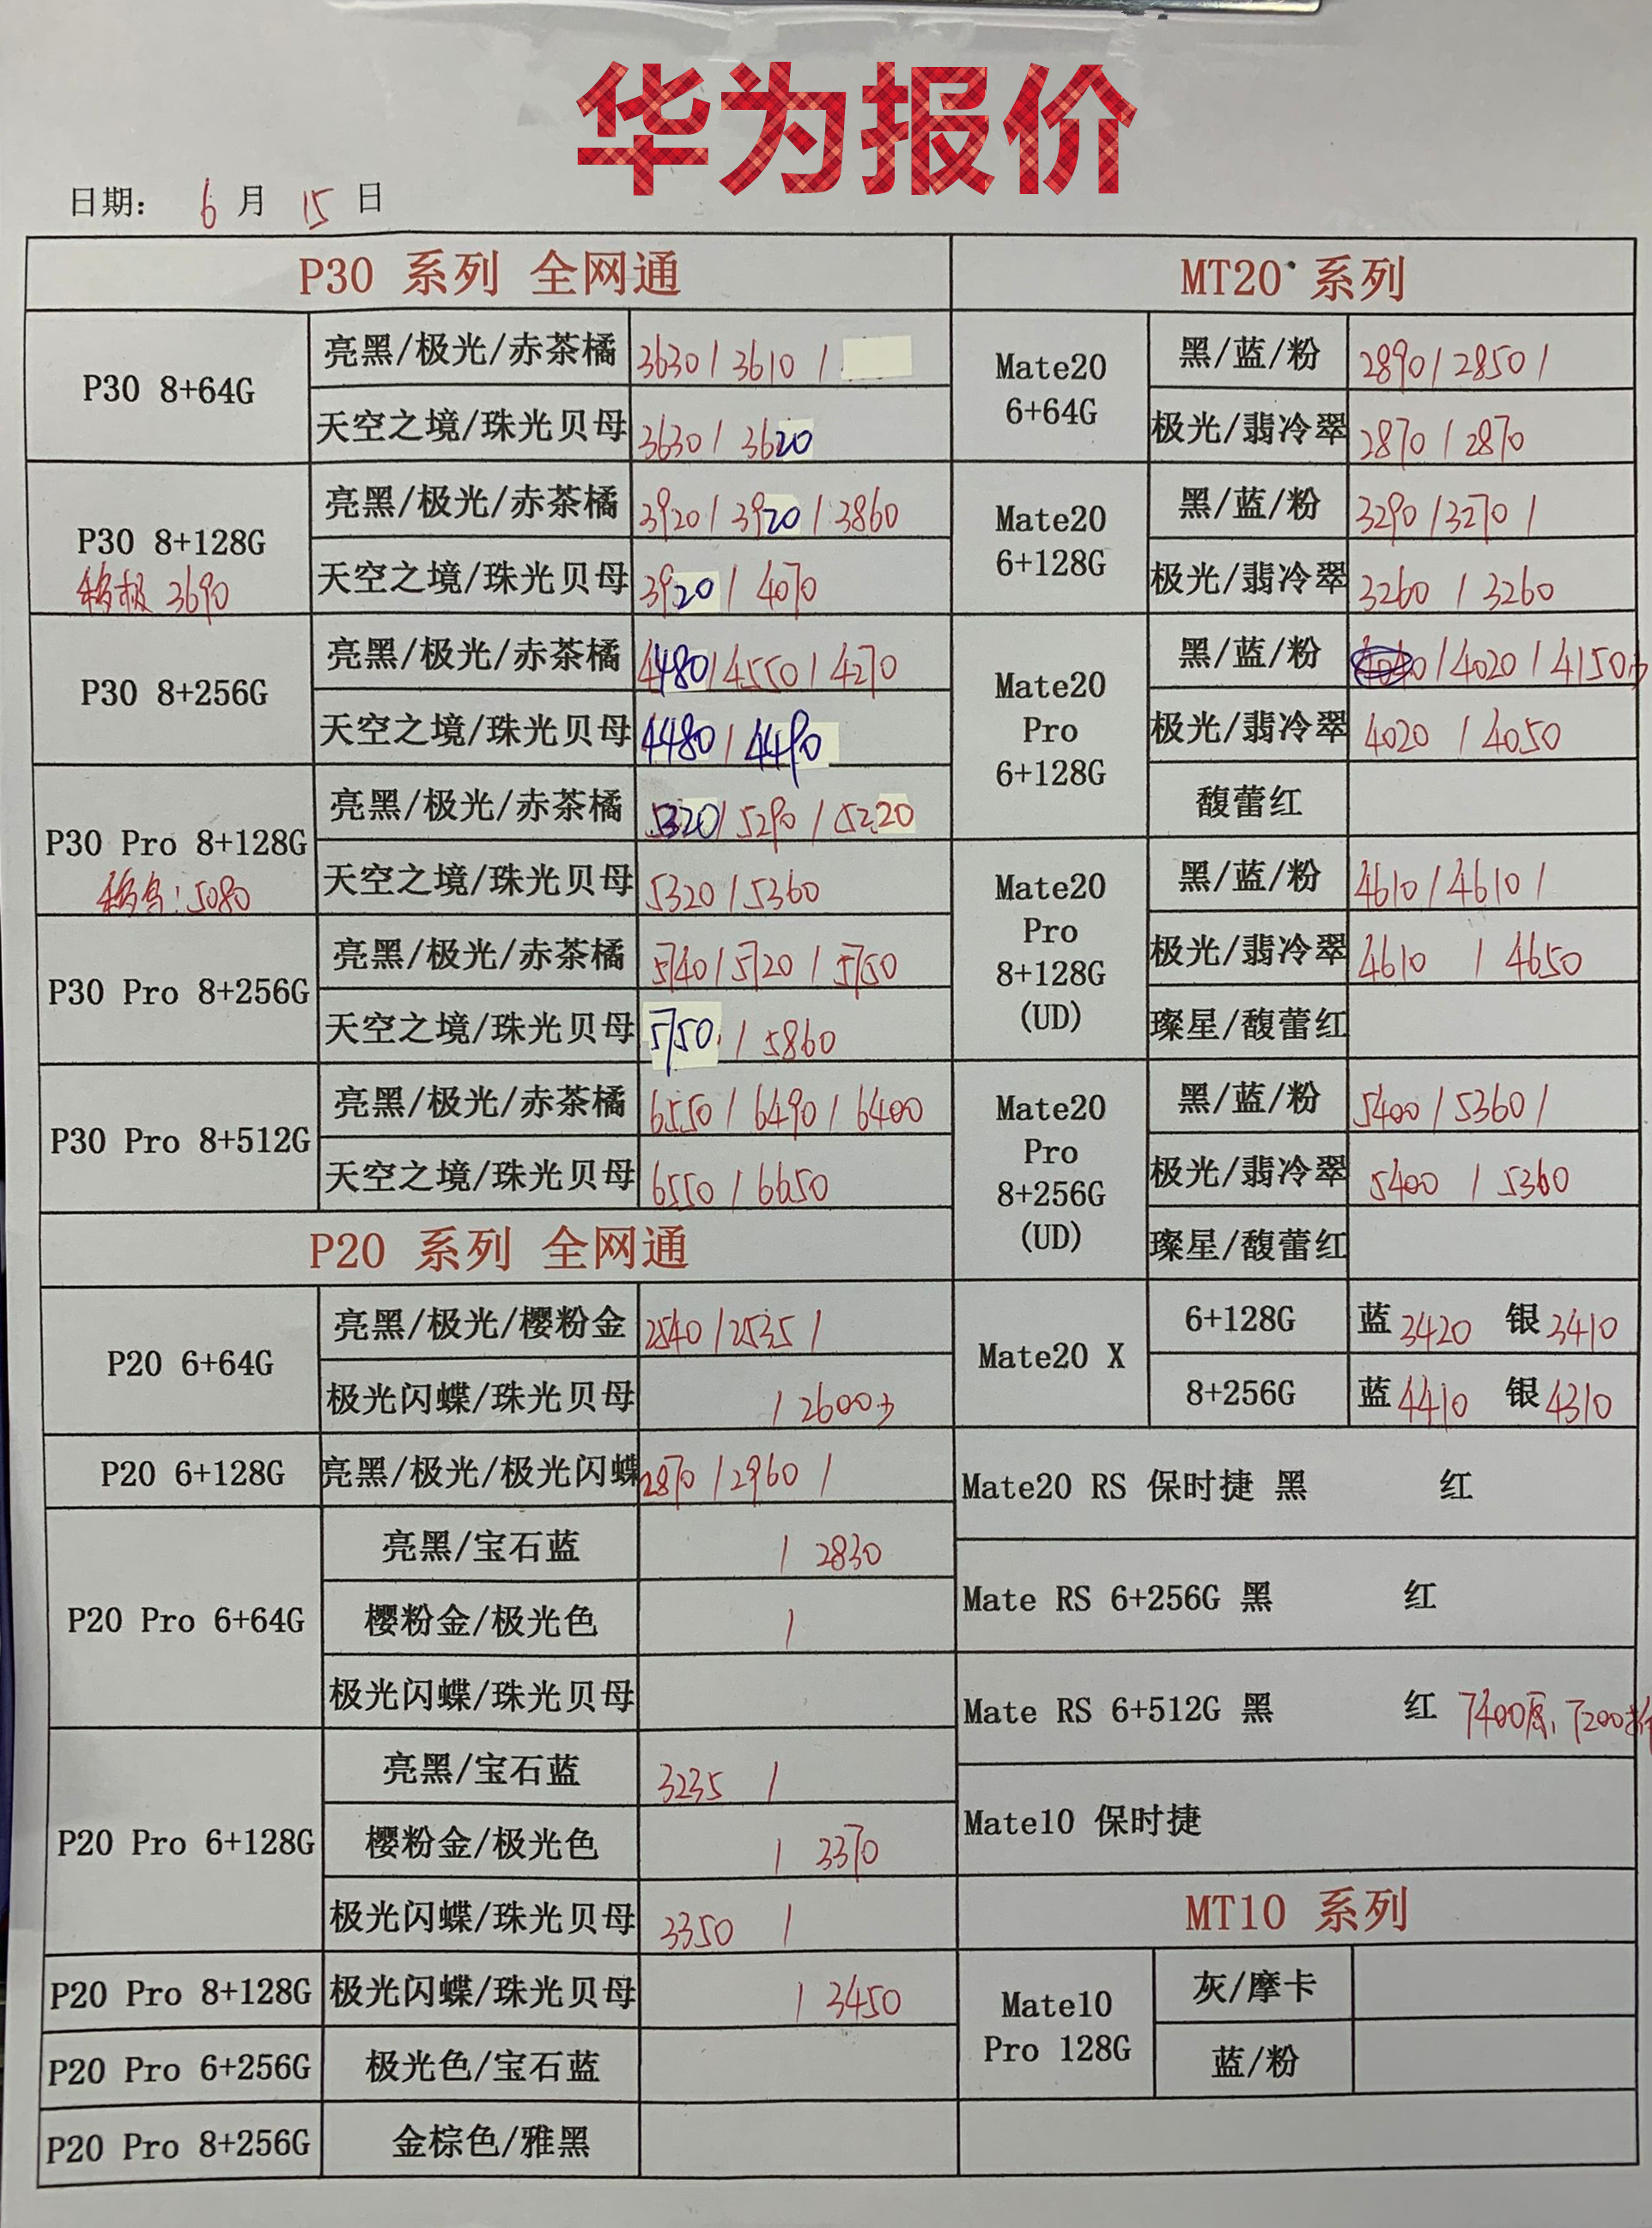 华为报价
日期: 6 月 15 日
P30 系列 全网通
P30 8+64G
亮黑/极光/赤茶橘 3630 / 3610 /
天空之境/珠光贝母 3630 / 3620
P30 8+128G
移极 3690
亮黑/极光/赤茶橘 3920 / 3920 / 3860
天空之境/珠光贝母 3920 / 4070
P30 8+256G
亮黑/极光/赤茶橘 4480 / 4550 / 4270
天空之境/珠光贝母 4480 / 4490
P30 Pro 8+128G
5080
亮黑/极光/赤茶橘 5320 / 5290 / 5220
天空之境/珠光贝母 5320 / 5360
P30 Pro 8+256G
亮黑/极光/赤茶橘 5740 / 5720 / 5750
天空之境/珠光贝母 5750 / 5860
P30 Pro 8+512G
亮黑/极光/赤茶橘 6550 / 6490 / 6400
天空之境/珠光贝母 6550 / 6650
P20 系列 全网通
P20 6+64G
亮黑/极光/樱粉金 2540 / 2535 /
极光闪蝶/珠光贝母 / 2600
P20 6+128G
亮黑/极光/极光闪蝶 2870 / 2960 /
P20 Pro 6+64G
亮黑/宝石蓝 / 2830
樱粉金/极光色 /
极光闪蝶/珠光贝母
P20 Pro 6+128G
亮黑/宝石蓝 3235 /
樱粉金/极光色 / 3370
极光闪蝶/珠光贝母 3350 /
P20 Pro 8+128G 极光闪蝶/珠光贝母 / 3450
P20 Pro 6+256G 极光色/宝石蓝
P20 Pro 8+256G 金棕色/雅黑
MT20 系列
Mate20
6+64G
黑/蓝/粉 2890 / 2850 /
极光/翡冷翠 2870 / 2870
Mate20
6+128G
黑/蓝/粉 3290 / 3270 /
极光/翡冷翠 3260 / 3260
Mate20
Pro
6+128G
黑/蓝/粉 / 4020 / 4150
极光/翡冷翠 4020 / 4050
馥蕾红
Mate20
Pro
8+128G
(UD)
黑/蓝/粉 4610 / 4610 /
极光/翡冷翠 4610 / 4650
璨星/馥蕾红
Mate20
Pro
8+256G
(UD)
黑/蓝/粉 5400 / 5360 /
极光/翡冷翠 5400 / 5360
璨星/馥蕾红
Mate20 X
6+128G 蓝 3420 银 3410
8+256G 蓝 4410 银 4310
Mate20 RS 保时捷 黑 红
Mate RS 6+256G 黑 红
Mate RS 6+512G 黑 红 7400原, 7200
Mate10 保时捷
MT10 系列
Mate10
Pro 128G
灰/摩卡
蓝/粉